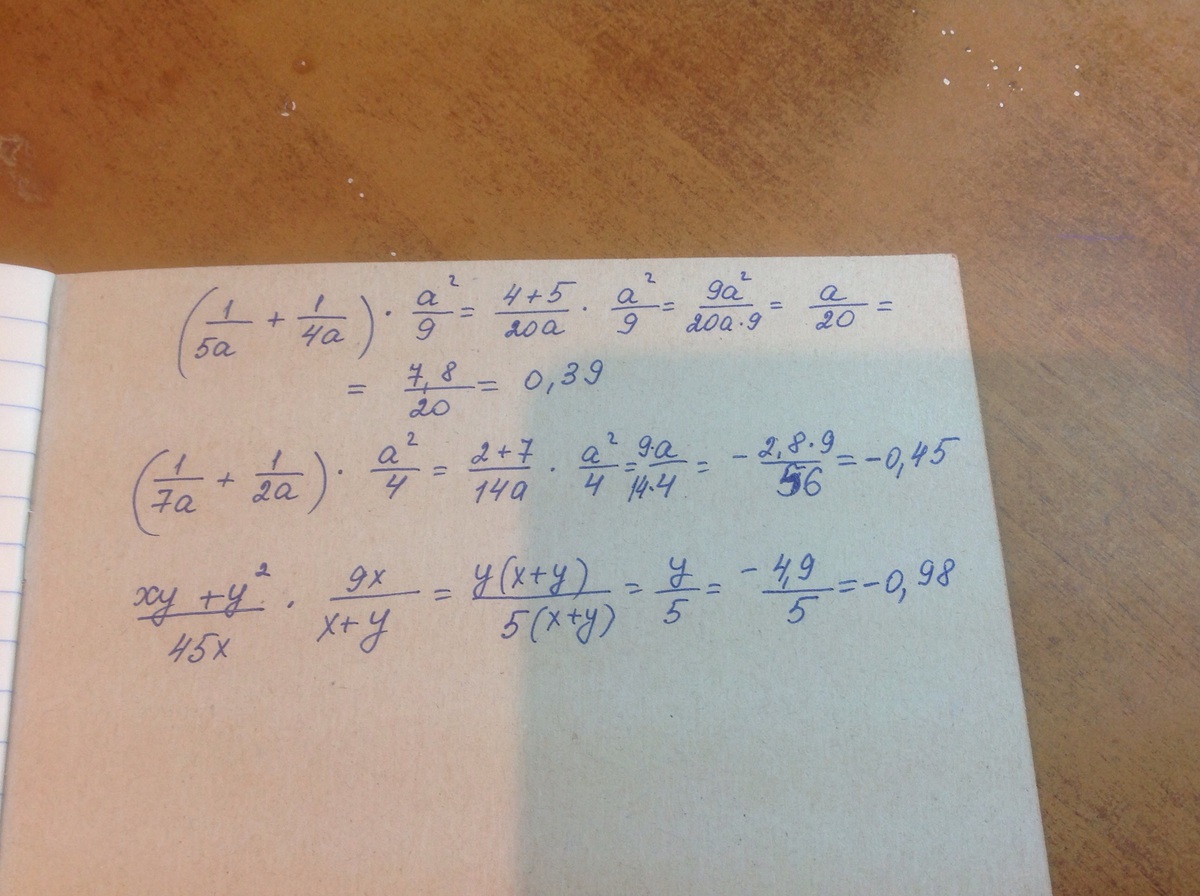 (1/5a + 1/4a) · a²/9 = 4+5/20a · a²/9 = 9a²/20a·9 = a/20 =
= 7,8/20 = 0,39
(1/7a + 1/2a) · a²/4 = 2+7/14a · a²/4 = 9·a/14·4 = - 2,8·9/56 = -0,45
xy+y²/45x · 9x/x+y = y(x+y)/5(x+y) = y/5 = -4,9/5 = -0,98